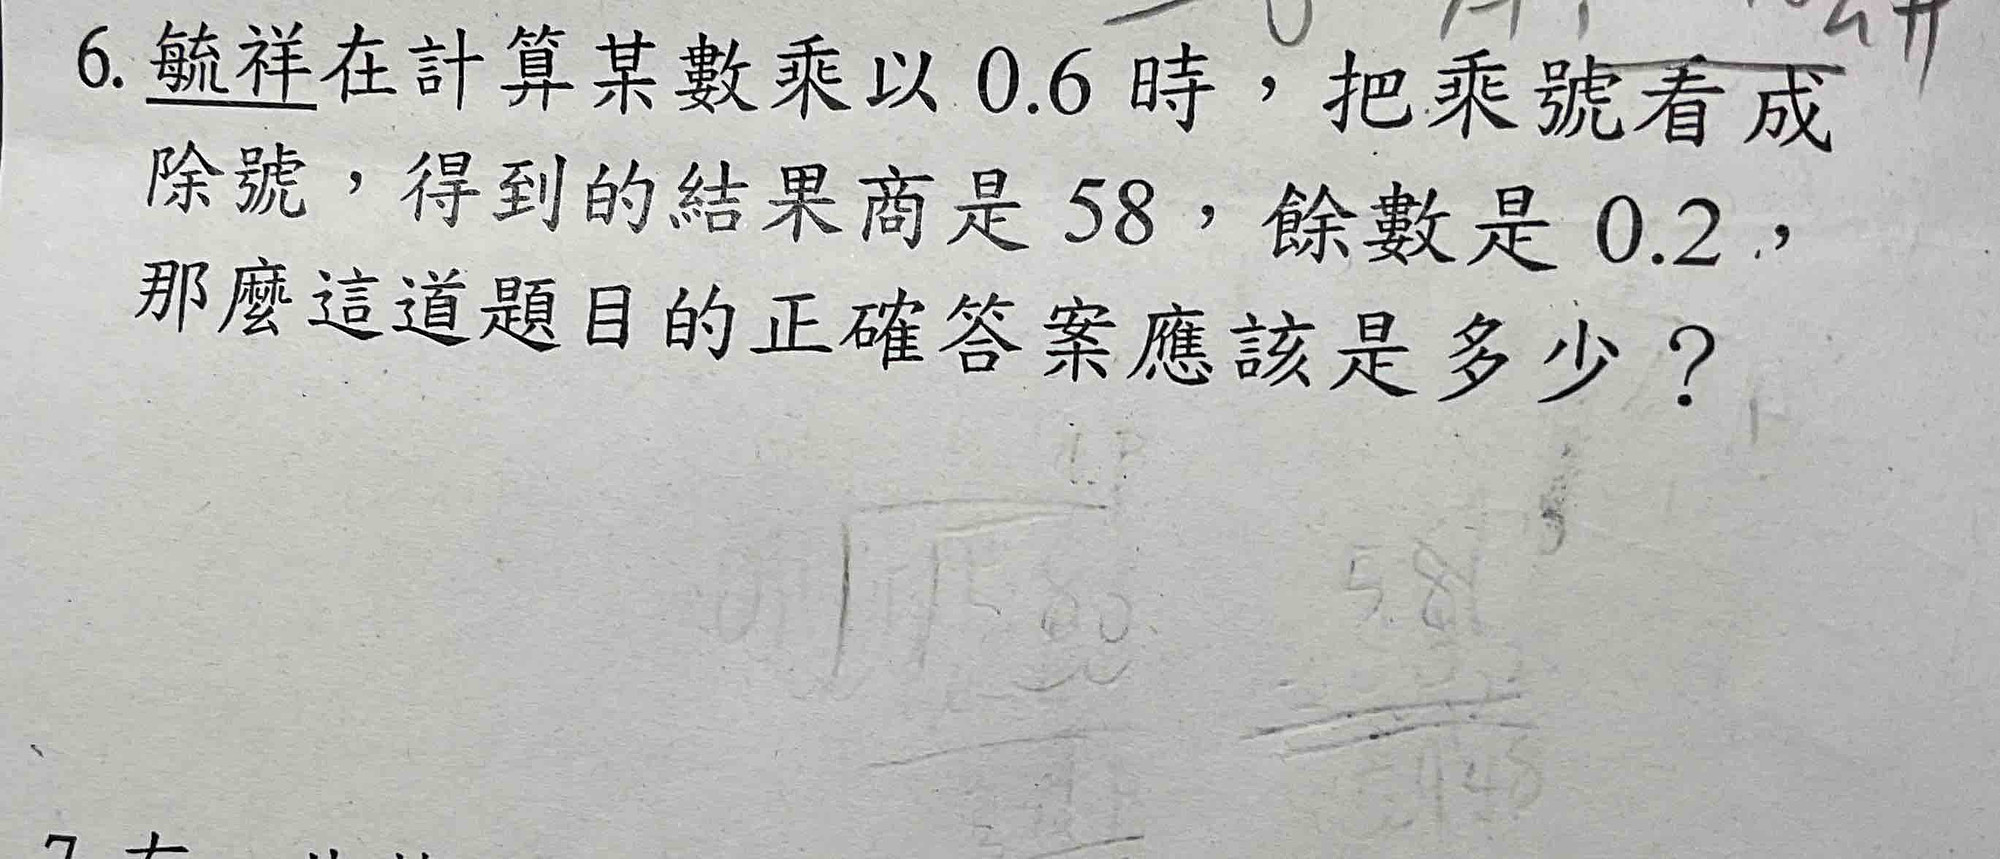 6. 毓祥在計算某數乘以 0.6 時，把乘號看成
除號，得到的結果商是 58，餘數是 0.2，
那麼這道題目的正確答案應該是多少？
5.81